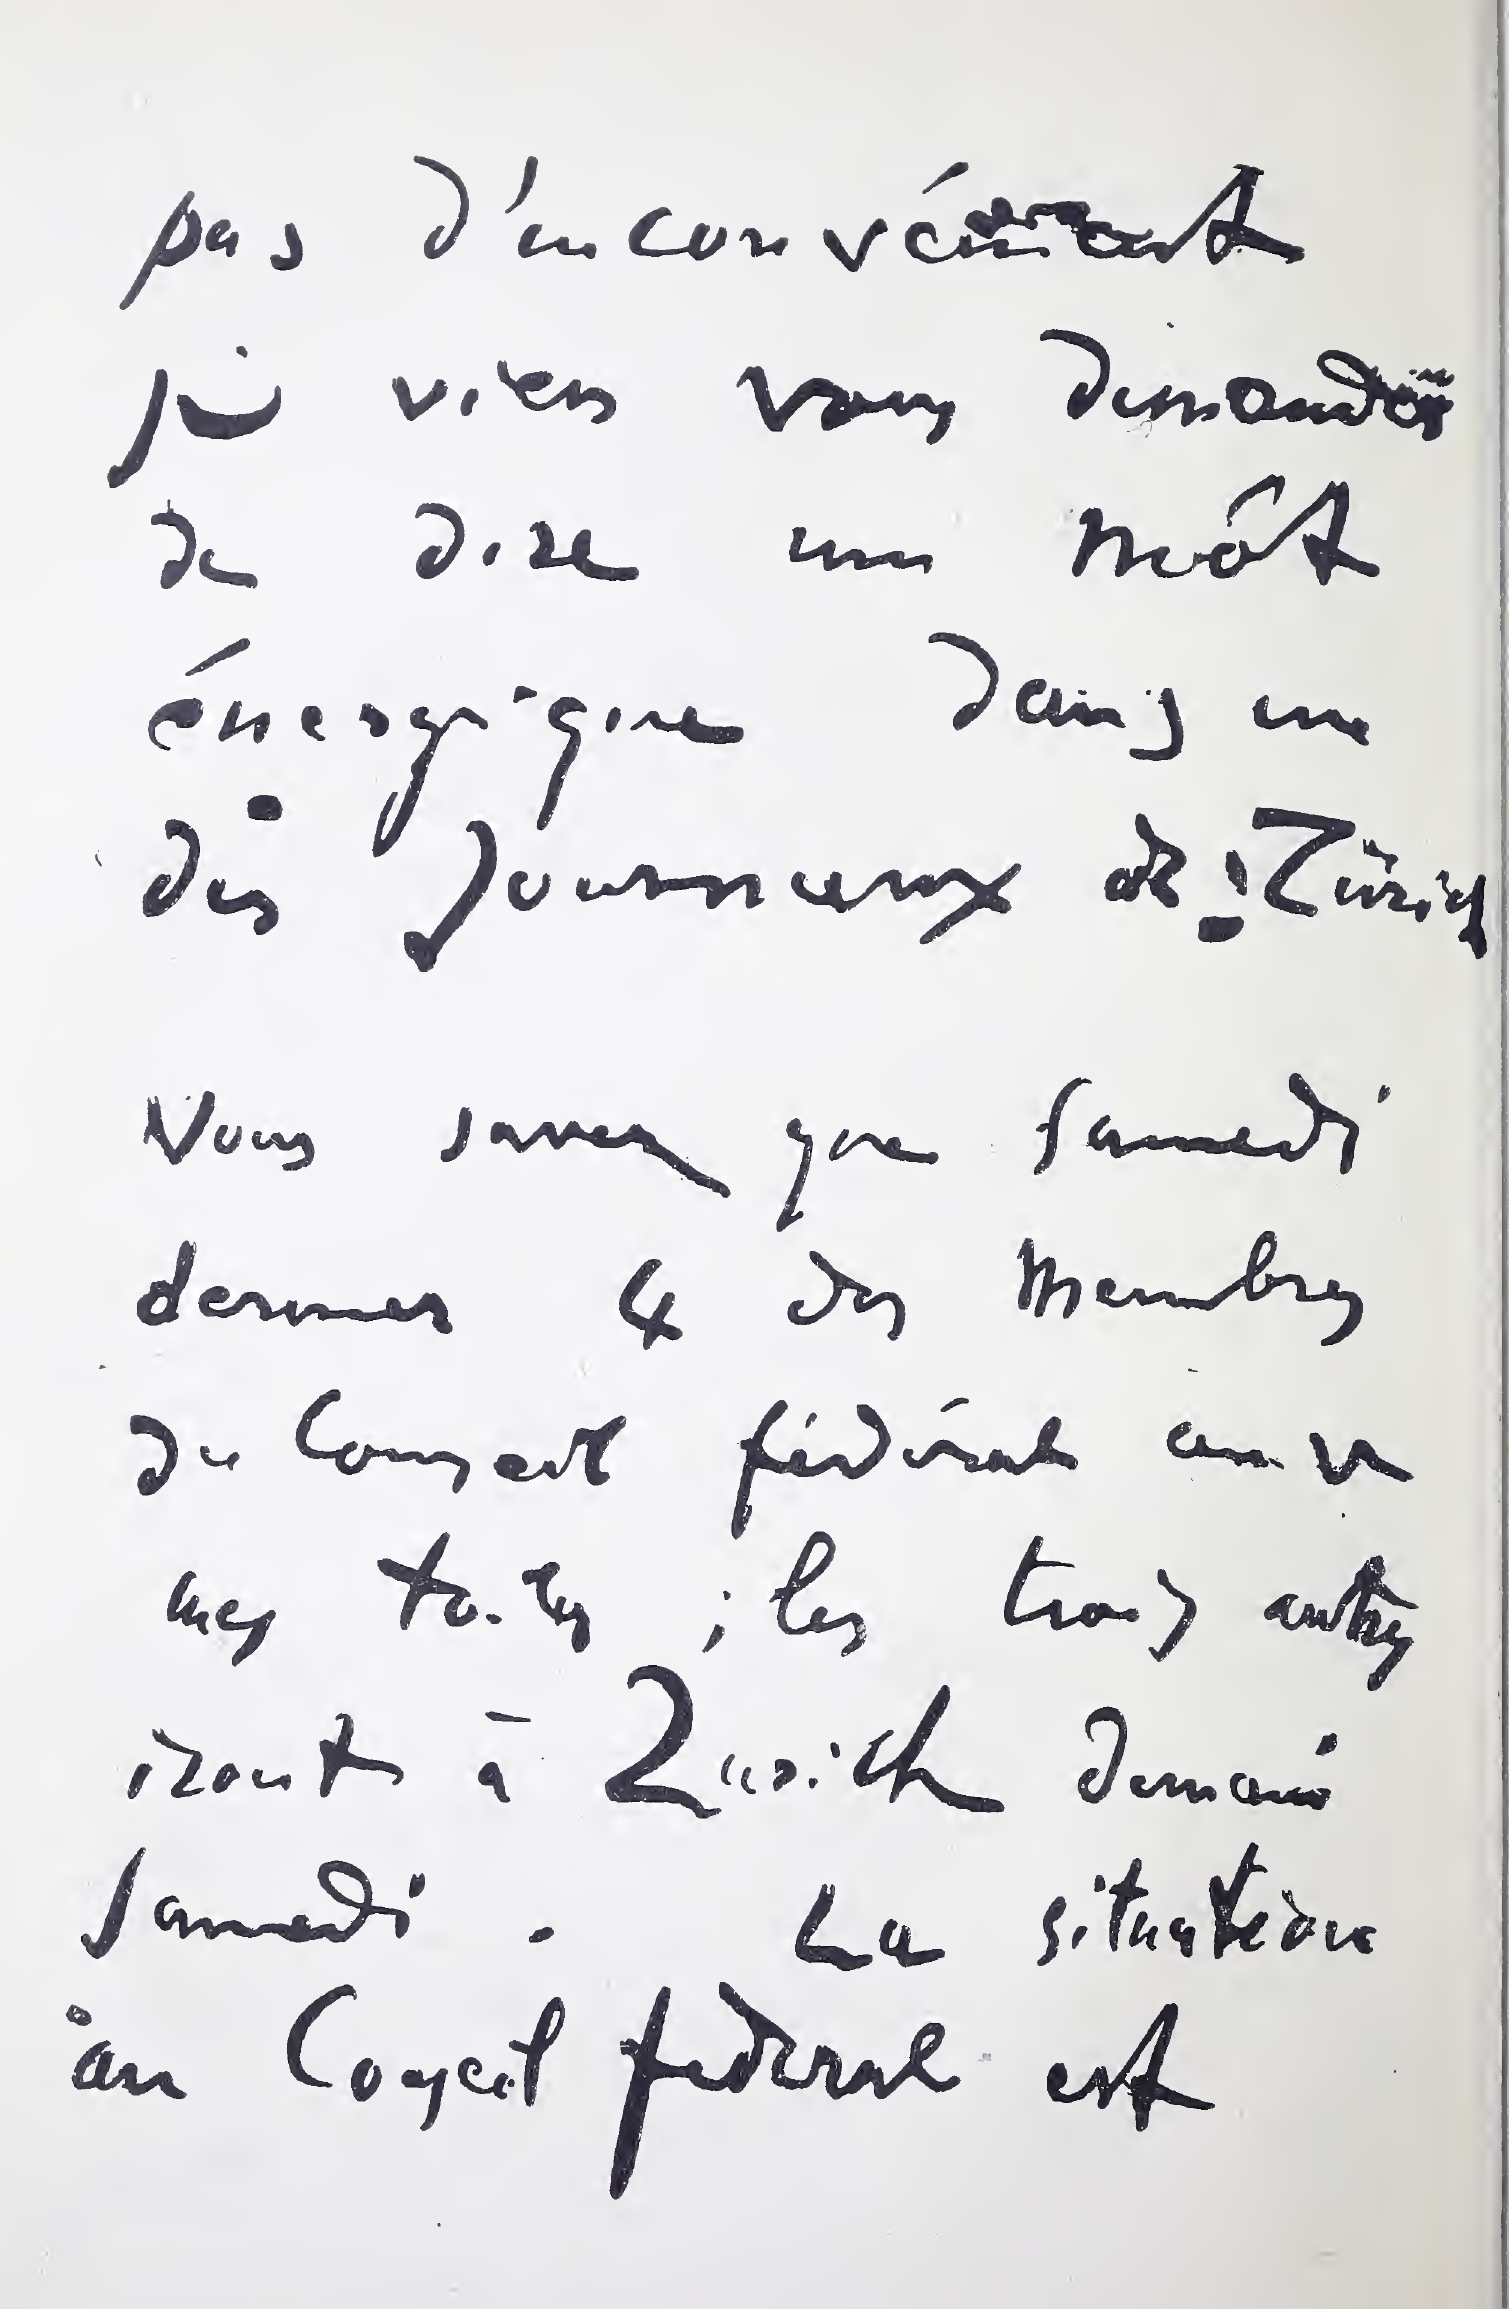 pas d'inconvénient
je viens vous demander
de dire un môt
énergique dans un
des Journaux de Zürich
Vous savez que samedi
dernier 4 des Membres
du Conseil fédéral on vu
mes toiles ; les trois autres
iront à Zurich demain
samedi . La situation
au Conseil fédéral est